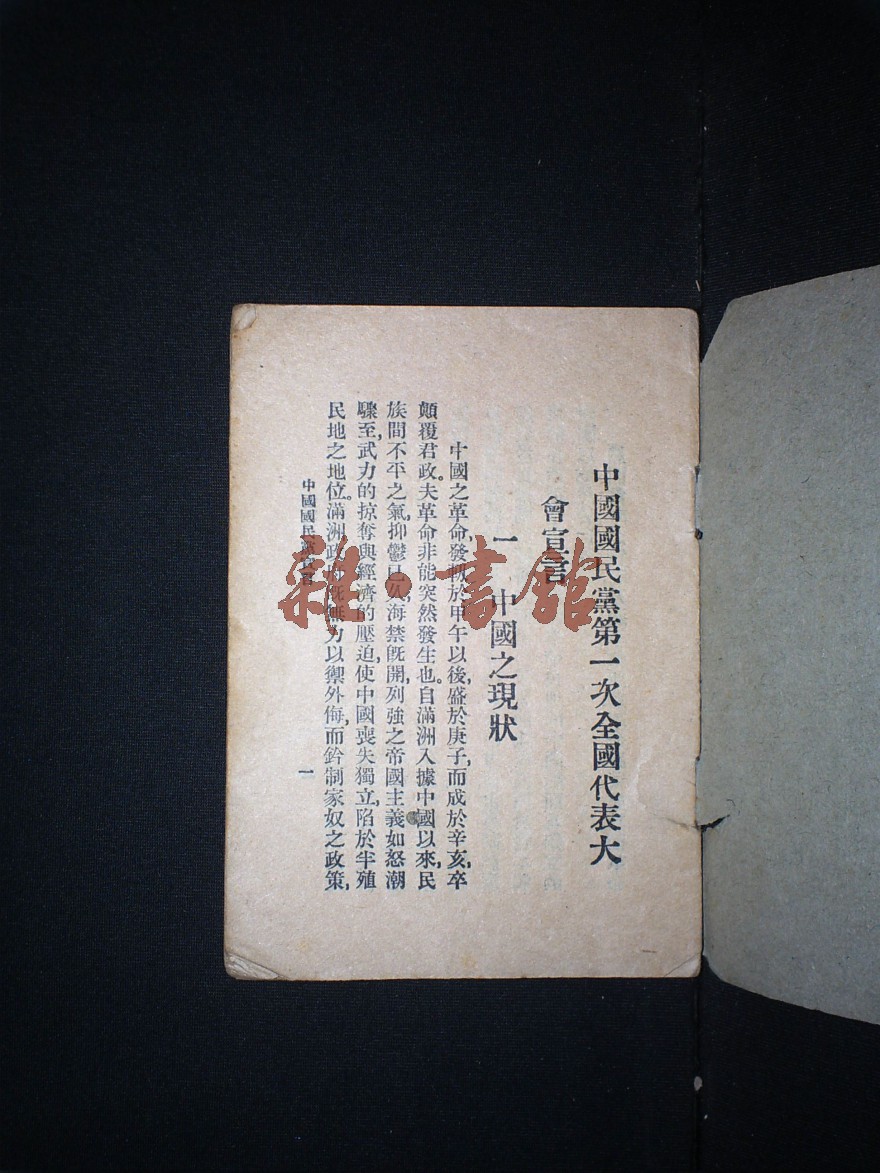 中國國民黨第一次全國代表大
會宣言
一 中國之現狀
中國之革命，發軔於甲午以後，盛於庚子，而成於辛亥，卒
顛覆君政。夫革命非能突然發生也。自滿洲入據中國以來，民
族間不平之氣，抑鬱已久，海禁旣開，列強之帝國主義如怒潮
驟至，武力的掠奪與經濟的壓迫，使中國喪失獨立，陷於半殖
民地之地位。滿洲政府旣無力以禦外侮，而鈐制家奴之政策，
中國國民黨宣言
一
雜·書館